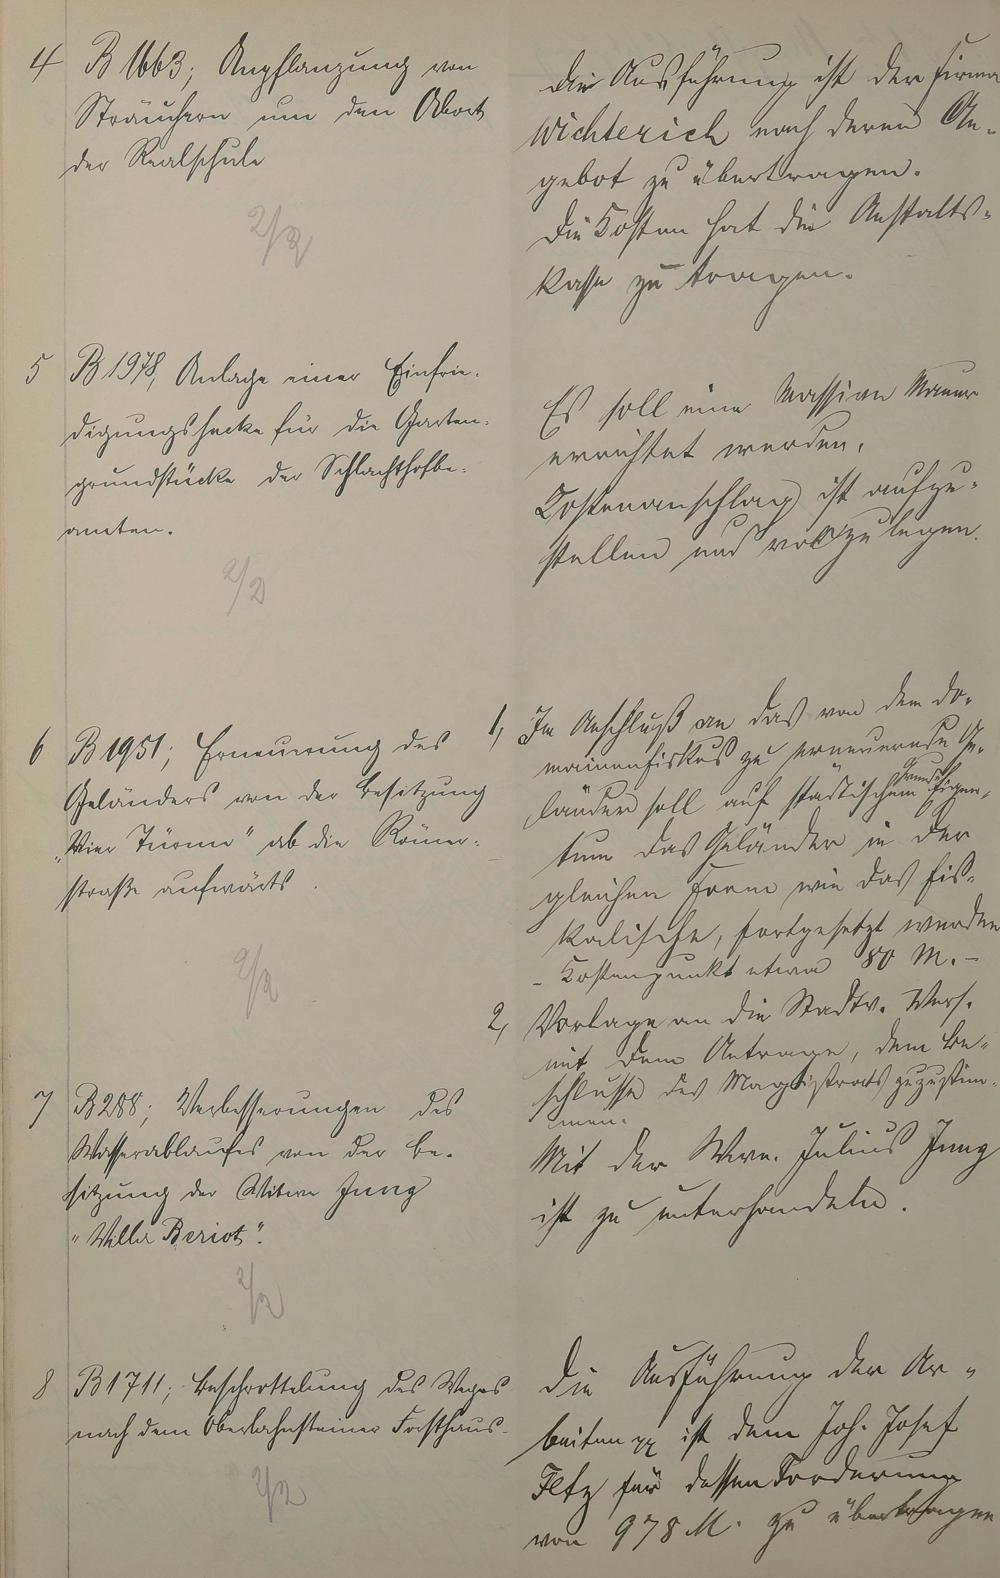 4 B 1663; Anpflanzung von
Sträuchern um den Abort
der Realschule
2/2
Die Ausführung ist der Firma
Wichterich nach deren An-
gebot zu übertragen.
Die Kosten hat die Anstalts-
kasse zu tragen.
5 B 1978, Anlage einer Einfrie-
digungshecke für die Garten-
grundstücke der Schlachthofbe-
amten.
2/2
Es soll eine massive Mauer
errichtet werden.
Kostenanschlag ist aufzu-
stellen und vorzulegen.
6 B 1951; Erneuerung des
Geländers von der Besitzung
„Vier Türme" ab die Römer-
straße aufwärts.
2/2
1, Im Anschluß an das von dem Do-
mainenfiskus zu erneuernde Ge-
länder soll auf städtischem Grund Eigen-
tum das Geländer in der
gleichen Form wie das fis-
kalische, fortgesetzt werden
- Kostenpunkt etwa 80 M. -
2, Vorlage an die Stadtv. Vers.
mit dem Antrage, dem Be-
schlusse des Magistrats zuzustim-
men.
7 B 288; Verbesserungen des
Wasserablaufes von der Be-
sitzung der Witwe Jung
"Villa Beriot".
2/2
Mit der Wwe. Julius Jung
ist zu unterhandeln.
8 B 1711; Beschotterung des Weges
nach dem Oberlahnsteiner Forsthaus.
2/2
Die Ausführung der Ar-
beiten pp ist dem Joh. Josef
für dessen Forderung
von 978 M. zu übertragen